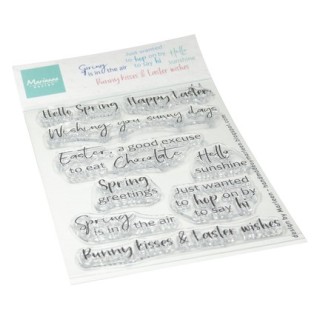 Marianne
DESIGN
Spring
is in the air
Just wanted
to hop on by
to say hi
Hello
sunshine
Bunny kisses & Easter wishes
Hello Spring Happy Easter
Wishing you sunny days
Easter, a good excuse
to eat Chocolate
Hello
sunshine
Spring
greetings
Just wanted
to hop on by
to say hi
Spring
is in the air
Bunny kisses & Easter wishes